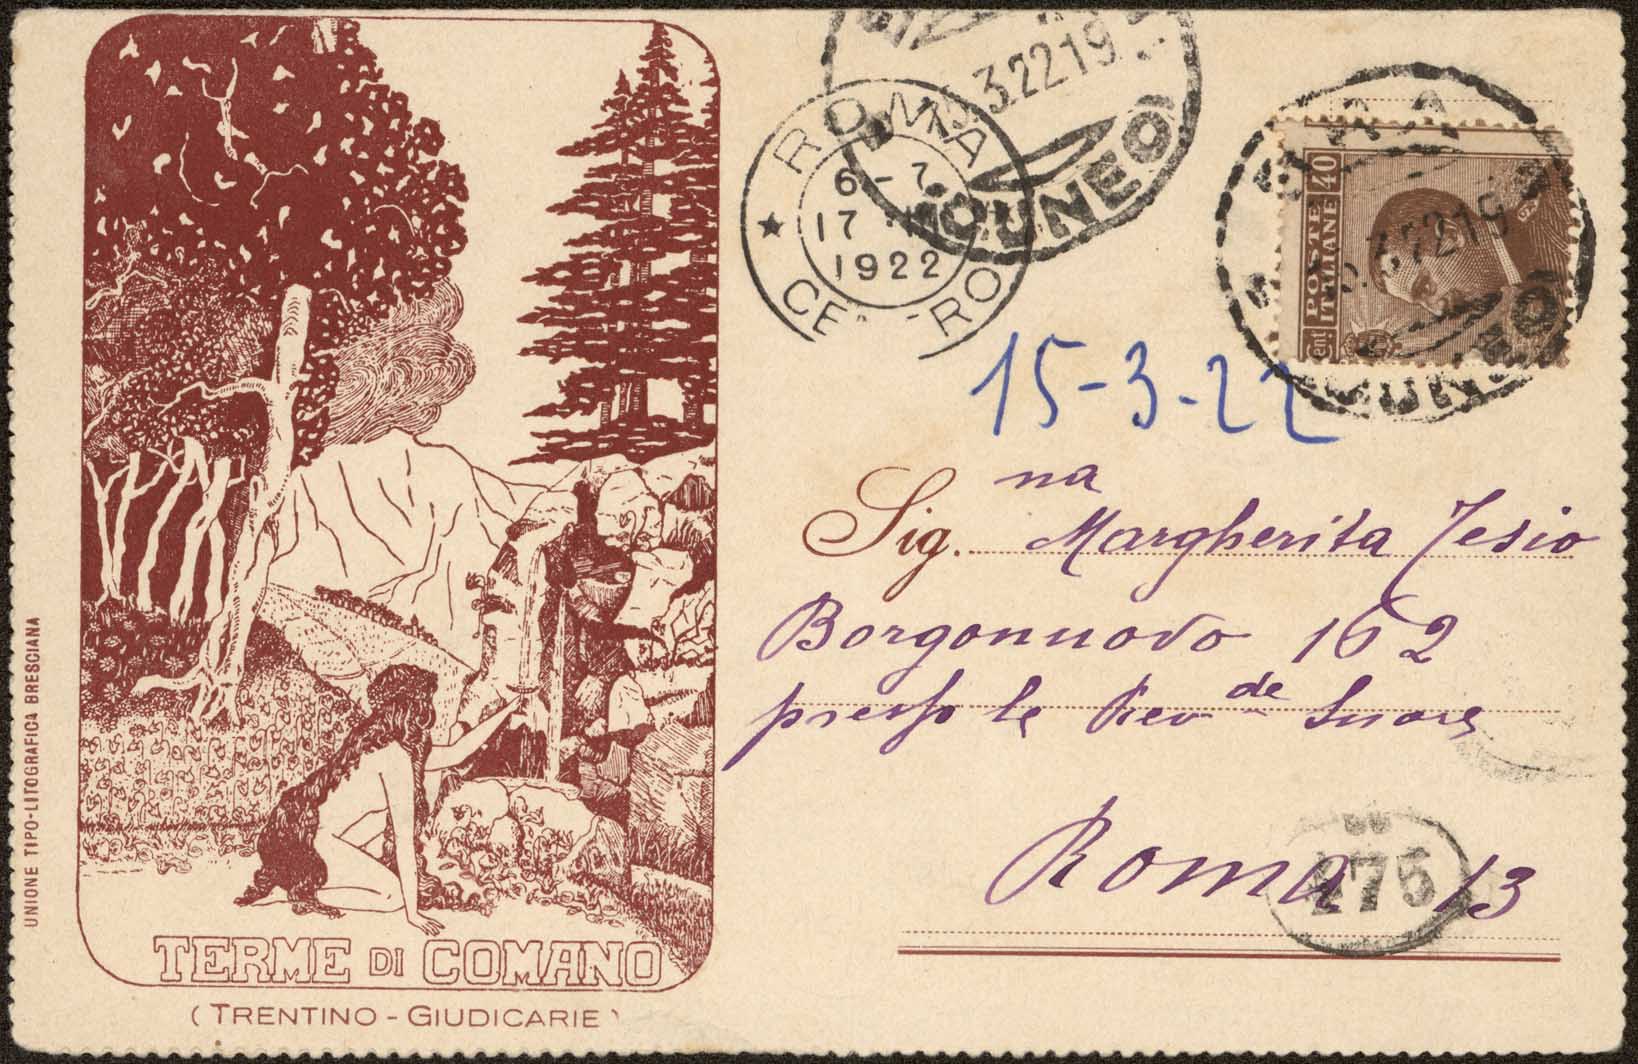 UNIONE TIPO-LITOGRAFICA BRESCIANA
TERME DI COMANO
(TRENTINO - GIUDICARIE)
3.22 19
CUNEO
ROMA
6-7
17
1922
CENTRO
POSTE ITALIANE 40
22 19
CUNEO
15-3-22
Sig.na Margherita Tesio
Borgonuovo 162
presso le Rev.de Suore
Roma 13
175